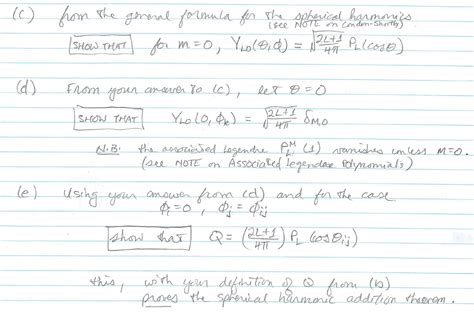 (c) from the general formula for the spherical harmonics
(see NOTE on Condon-Shortly)
SHOW THAT for m=0, Y_{L0}(θ,ϕ) = √(2L+1/4π) P_L(cosθ)
(d) From your answer to (c), let θ = 0
SHOW THAT Y_{L0}(0, ϕ_k) = √(2L+1/4π) δ_{M0}
N.B: the associated Legendre P_L^M(1) vanishes unless M=0.
(see NOTE on Associated Legendre Polynomials)
(e) Using your answer from (d) and for the case
ϕ_i = 0, ϕ_j = ϕ_{ij}
Show that Q = (2L+1/4π) P_L (cosθ_{ij})
this, with your definition of Q from (b)
proves the spherical harmonic addition theorem.